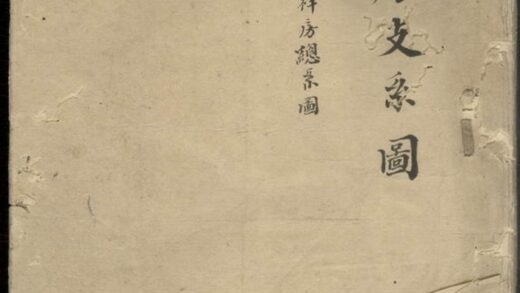 支系圖
祥房總系圖